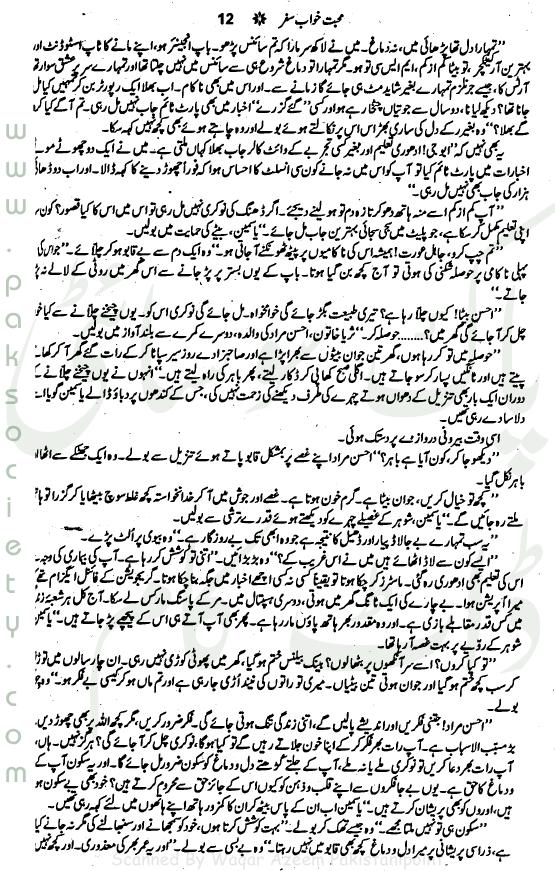 محبت خواب سفر ❋ 12
’’تمہارا دل تھا پڑھائی میں، نہ دماغ۔ میں نے لاکھ سر مارا کہ تم سائنس پڑھو۔ باپ انجینئر ہو، اپنے مانے کا ٹاپ اسٹوڈنٹ اور
بہترین آرکیٹیکچر، تو بیٹا کم از کم، ایم ایس سی تو ہو۔ مگر تمہارا تو دماغ شروع ہی سے سائنس میں نہیں چلتا تھا اور تمہارے سر پر عشق سوار تھا
آرٹس کا، جیسے جرنلزم تمہارے بغیر شاید مٹ ہی جائے گا زمانے سے۔ اور اس میں بھی ناکام۔ اب بھلا ایک رپورٹر بن کر تمہیں کیا مل
جانا تھا؟ دیکھ لیا نا، دو سال سے جوتیاں چٹخا رہے ہو اور کسی ’’گئے گزرے‘‘ اخبار میں بھی پارٹ ٹائم جاب نہیں مل رہی۔ تم آگے کیا کرو
گے بھلا؟‘‘ وہ بغیر رکے دل کی ساری بھڑاس اس پر نکالتے ہوئے بولے اور وہ چاہتے ہوئے بھی کچھ نہیں کہہ سکا۔
یہ بھی نہیں کہ ’ابو جی! ادھوری تعلیم اور بغیر کسی تجربے کے وائٹ کالر جاب بھلا کہاں ملتی ہے۔ میں نے ایک دو چھوٹے موٹے
اخبارات میں پارٹ ٹائم کیا تو آپ کو اس میں نہ جانے کون سی انسلٹ کا احساس ہوا کہ فوراً چھوڑ دینے کا کہہ ڈالا۔ اور اب دو ڈھائی
ہزار کی جاب بھی نہیں مل رہی۔‘‘
’’آپ کم از کم اسے منہ ہاتھ دھو کر تازہ دم تو ہو لینے دیجئے۔ اگر ڈھنگ کی نوکری نہیں مل رہی تو اس میں اس کا کیا قصور؟ کون سا
اپنی تعلیم مکمل کر سکا ہے، جو پلیٹ میں سجی سجائی بہترین جاب مل جائے۔‘‘ یاسمین، بیٹے کی حمایت میں بولیں۔
’’تم چپ کرو، جاہل عورت! ہمیشہ اس کی ناکامیوں پر پیٹھ ٹھونکنے آ جاتی ہو۔‘‘ وہ ایک دم سے بے قابو ہو کر چلائے۔ ’’جو اس کی
پہلی ناکامی پر حوصلہ شکنی کی ہوتی تو آج کچھ بن گیا ہوتا۔ باپ کے یوں بستر پر پڑ جانے سے اس گھر میں روٹی کے لالے نہ پڑ
جاتے۔‘‘
’’احسن بیٹا! کیوں چلا رہا ہے؟ تیری طبیعت بگڑ جائے گی خوامخواہ۔ مل جائے گی نوکری اس کو۔ یوں چیخنے چلانے سے کیا خو
چل کر آ جائے گی گھر میں؟........ حوصلہ کر۔‘‘ ثریا خاتون، احسن مراد کی والدہ، دوسرے کمرے سے بلند آواز میں بولیں۔
’’حوصلہ میں تو کر رہا ہوں، گھر تین جوان بیٹوں سے بھرا پڑا ہے اور صاحبزادے روز سیر سپاٹا کر کے رات گئے گھر آ کر کھا۔
پیتے ہیں اور ٹانگیں پسار کر سو جاتے ہیں۔ اگلی صبح کھا پی کر ڈکار لیتے، پھر باہر کی راہ لیتے ہیں۔‘‘ انہوں نے یوں چیخنے چلانے کے
دوران ایک بار بھی تنزیل کے دھواں ہوتے چہرے کی طرف دیکھنے کی زحمت نہیں کی، جس کے کندھوں پر دباؤ ڈالے یاسمین گویا اسے
دلاسا دے رہی تھیں۔
اسی وقت بیرونی دروازے پر دستک ہوئی۔
’’دیکھو جا کر، کون آیا ہے باہر؟‘‘ احسن مراد اپنے غصے پر بمشکل قابو پاتے ہوئے تنزیل سے بولے۔ وہ ایک جھٹکے سے اٹھا اور
باہر نکل گیا۔
’’کچھ تو خیال کریں، جوان بیٹا ہے۔ گرم خون ہوتا ہے۔ غصے اور جوش میں آ کر خدانخواستہ کچھ غلط سوچ بیٹھا یا کر گزرا تو ہاتھ
ملتے رہ جائیں گے۔‘‘ یاسمین، شوہر کے غصیلے چہرے کو دیکھتے ہوئے قدرے ترشی سے بولیں۔
’’یہ سب تمہارے بے جا لاڈ پیار اور ڈھیل کا نتیجہ ہے جو وہ ابھی تک بے روزگار ہے۔‘‘ وہ بیوی پر الٹ پڑے۔
’’ایسے کون سے لاڈ اٹھائے ہیں میں نے اس غریب کے؟‘‘ وہ بڑبڑائیں۔ ’’اتنی تو کوشش کر رہا ہے۔ آپ کی بیماری کی وجہ سے
اس کی تعلیم بھی ادھوری رہ گئی۔ ماسٹرز کر چکا ہوتا تو یقیناً کسی نہ کسی اچھے اخبار میں جگہ بنا چکا ہوتا۔ گریجویشن کے فائنل ایگزام تھے
میرا آپریشن ہوا۔ بے چارے کی ایک ٹانگ گھر میں ہوتی، دوسری ہسپتال میں۔ مر کے پاسنگ مارکس لے سکا۔ آج کل ہر شعبہ زندگی
میں کس قدر مقابلے بازی ہے۔ اور وہ مقدور بھر ہاتھ پاؤں مار رہا ہے۔ پھر بھی آپ آتے ہی اس کے پیچھے پڑ جاتے ہیں۔‘‘ یاسمین کو
شوہر کے رویے پر بہت غصہ آ رہا تھا۔
’’تو کیا کروں؟ اسے سر آنکھوں پر بٹھا لوں؟ بینک بیلنس ختم ہو گیا، گھر میں پھوٹی کوڑی نہیں رہی۔ ان چار سالوں میں توڑ
کر سب کچھ ختم ہو گیا اور جوان ہوتی تین بیٹیاں۔ میری تو راتوں کی نیند اڑی جا رہی ہے اور تم ماں ہو کر کیسی بے فکر ہو۔‘‘ وہ چیخ
بولے۔
’’احسن مراد! جتنی فکریں اور اندیشے پالیں گے، اتنی زندگی تنگ ہوتی جائے گی۔ فکر ضرور کریں، مگر کچھ اللہ پر بھی چھوڑ دیں
بڑا مسبب الاسباب ہے۔ آپ رات بھر فکر کر کے اپنا خون جلاتے رہیں گے تو کیا ہو گا، نوکری چل کر آ جائے گی؟ ہرگز نہیں۔ ہاں،
آپ رات بھر دعا کریں تو نوکری ملے یا نہ ملے، آپ کے جلتے کڑھتے دل و دماغ کو سکون ضرور مل جائے گا۔ اور یہ سکون آپ کے
و دماغ کا حق ہے۔ یوں بے جا فکروں سے اپنے قلب و ذہن کو کیوں اس کے جائز حق سے محروم کرتے ہیں؟ خود بھی بے سکون ہو
ہیں، اوروں کو بھی پریشان کرتے ہیں۔‘‘ یاسمین اب ان کے پاس بیٹھ کر ان کا کمزور ہاتھ اپنے ہاتھوں میں لئے کہہ رہی تھیں۔
’’سکون ہی تو نہیں ملتا مجھے۔‘‘ وہ جیسے تھک کر بولے۔ ’’بہت کوشش کرتا ہوں، خود کو سمجھانے اور سنبھالنے کی مگر نہ جانے کیا
ہے، ذرا سی پریشانی پر میرا دل و دماغ کچھ بھی قابو میں نہیں رہتا۔‘‘ وہ بے بسی سے بولے۔ ’’اور یہ عمر بھر کی معذوری۔ اور کچھ نہیں
www.paksociety.com
Scanned By Waqar Azeem Pakistanipoint